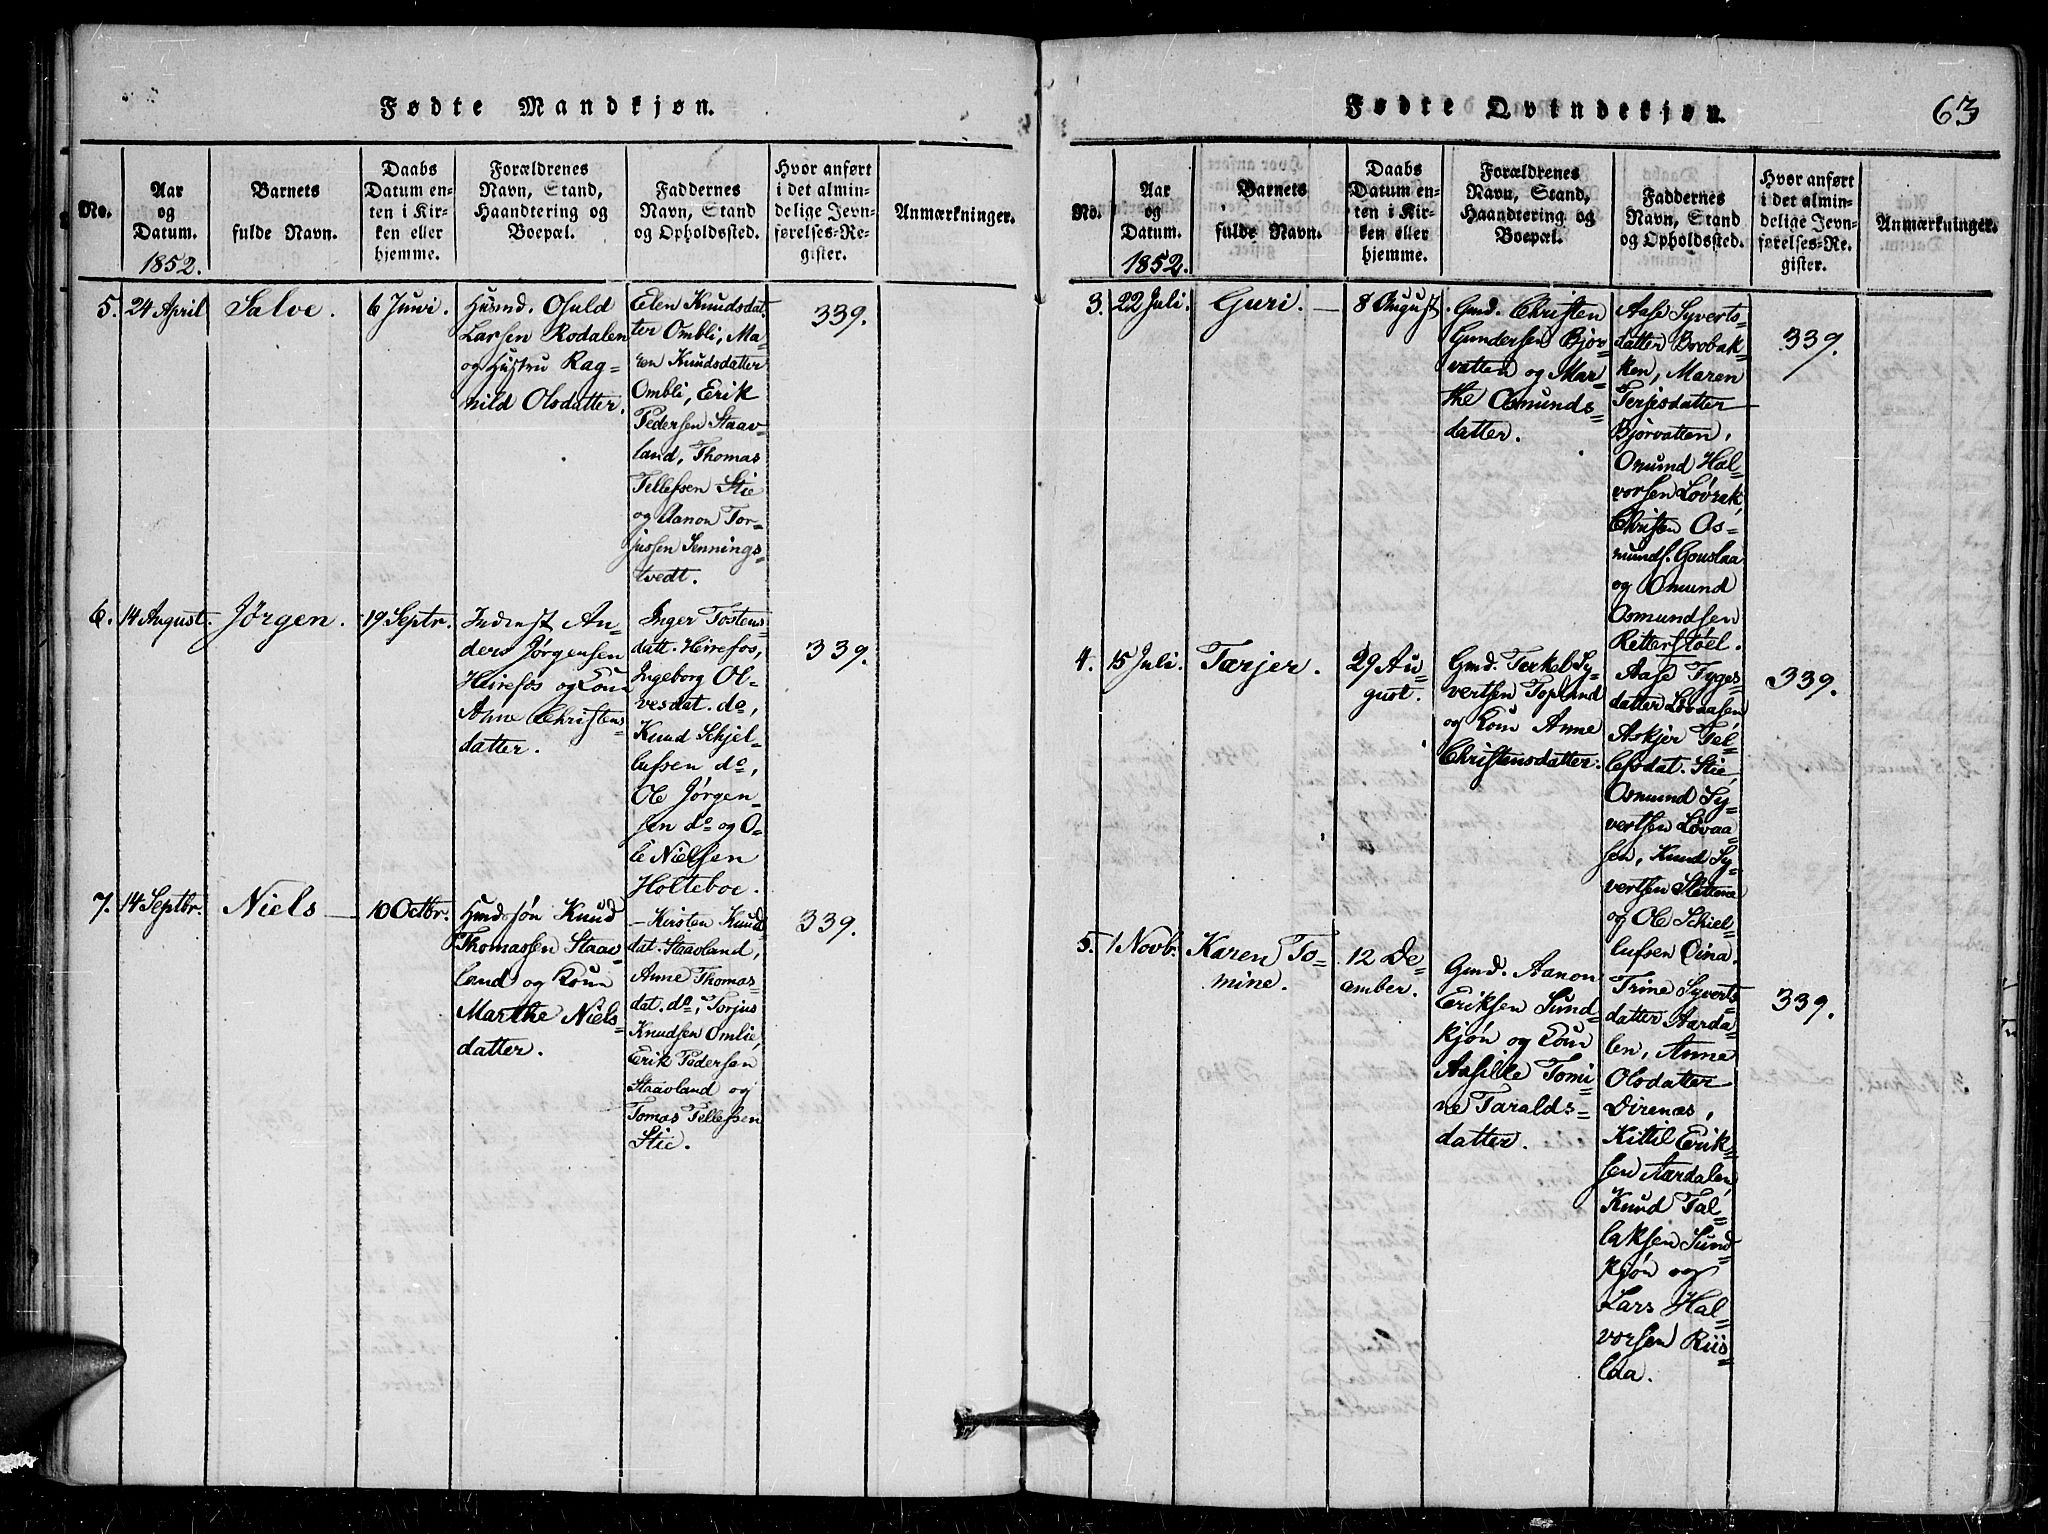 Fødte Mandkjøn.
No.
Aar
og
Datum.
1852.
Barnets
fulde Navn.
Daabs
Datum en-
ten i Kir-
ken eller
hjemme.
Forældrenes
Navn, Stand,
Haandtering og
Boepæl.
Faddernes
Navn, Stand
og Opholdssted.
Hvor anført
i det almin-
delige Jevn-
førelses-Re-
gister.
Anmærkninger.
5.
24 April
Salve.
6 Juni
Husmd. Osuld
Larsen Rodalen
og Hustru Rag=
nild Olsdatter.
Elen Knudsdat=
ter Ombli, Ma=
ren Knudsdatter
Ombli, Erik
Pedersen Staav=
land, Thomas
Tellefsen Stie
og Aanon Tor=
jussen Jennings=
tvedt.
339.
6.
14 August.
Jørgen.
19 Septr.
Inderst An=
ders Jørgensen
Heirefos og Kon
Anne Christens
datter.
Inger Tostens=
datt. Heirefos,
Ingeborg Ol=
vesdat. do,
Knud Schjel=
lufsen do,
Ole Jørgen=
sen do og O=
le Nielsen
Holteboe.
339.
7.
14 Septbr.
Niels
10 Octbr.
Gmd. søn Knud
Thomassen Staav=
land og Kon
Marthe Niels=
datter.
Kirsten Knud
dat. Staavland,
Anne Thomas=
dat. do, Torjus
Knudsen Omlie,
Erik Pedersen
Staavland og
Tomas Tellefsen
Stie.
339.
Fødte Qvindekjøn.
63
No.
Aar
og
Datum.
1852.
Barnets
fulde Navn.
Daabs
Datum en-
ten i Kir-
ken eller
hjemme.
Forældrenes
Navn, Stand,
Haandtering og
Boepæl.
Faddernes
Navn, Stand
og Opholdssted.
Hvor anført
i det almin-
delige Jevn-
førelses-Re-
gister.
Anmærkninger.
3.
22 Juli.
Guri.
8 August
Gmd. Christen
Gundersen Bjor=
vatten og Mar=
the Osmunds=
datter.
Aase Syverts=
datter Brobak=
ken, Maren
Terjesdatter
Bjorvatten,
Omund Hal=
vorsen Løvrak,
Christen Os=
munds. Gouslaa
og Omund
Osmundsen
Ritterstøel.
339.
4.
15 Juli.
Tarjer.
29 Au=
gust.
Gmd. Terkel Sy=
vertsen Topland
og Kon Anne
Christensdatter.
Aase Tyges=
datter Løvaasen,
Askjer Tel=
lefsdat. Stie,
Osmund Sy=
vertsen Løvaa=
sen, Knud Sy=
vertsen Slettene
og Ole Schiel=
lufsen Oina.
339.
5.
1 Novb.
Karen To=
mine.
12 De=
cember.
Gmd. Aanon
Eriksen Sund=
kjøn og Kon
Aasille Tomi=
ne Taralds=
datter.
Trine Syverts
datter Aarda=
len, Anne
Olsdatter
Direnæs,
Kittil Erik=
sen Aardalen,
Knud Tal=
laksen Sund=
kjøn og
Lars Hal=
vorsen Riis=
laa.
339.